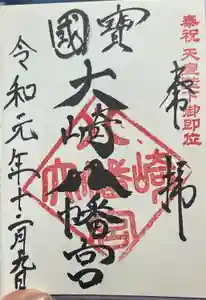 奉祝 天皇陛下御即位
奉拝
國寶
大崎八幡宮
令和元年十二月九日